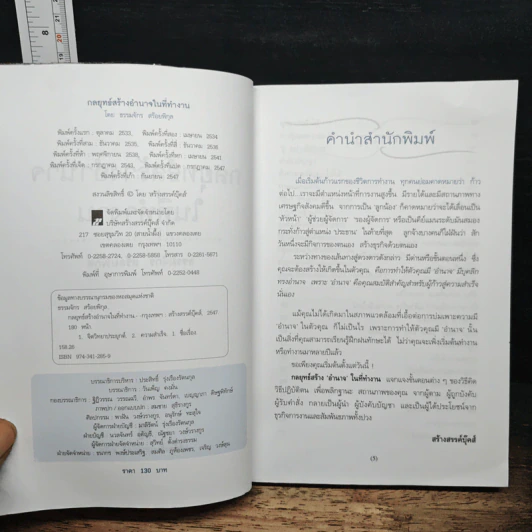 8
กลยุทธ์สร้างอำนาจในที่ทำงาน
โดย ธรรมจักร สร้อยพิกุล
พิมพ์ครั้งแรก : ตุลาคม 2533, พิมพ์ครั้งที่สอง : เมษายน 2534
พิมพ์ครั้งที่สาม : ธันวาคม 2535, พิมพ์ครั้งที่สี่ : ธันวาคม 2538
พิมพ์ครั้งที่ห้า : พฤศจิกายน 2538, พิมพ์ครั้งที่หก : เมษายน 2541
พิมพ์ครั้งที่เจ็ด : กรกฎาคม 2543, พิมพ์ครั้งที่แปด : กรกฎาคม 2547
พิมพ์ครั้งที่เก้า : กันยายน 2547
สงวนลิขสิทธิ์ © โดย สร้างสรรค์บุ๊คส์
จัดพิมพ์และจัดจำหน่ายโดย
บริษัทสร้างสรรค์บุ๊คส์ จำกัด
217 ซอยสุขุมวิท 20 (สายน้ำผึ้ง) แขวงคลองเตย
เขตคลองเตย กรุงเทพฯ 10110
โทรศัพท์ 0-2258-2724, 0-2258-5650 โทรสาร 0-2261-5671
พิมพ์ที่ อุษาการพิมพ์ โทรศัพท์ 0-2252-0448
ข้อมูลทางบรรณานุกรมของหอสมุดแห่งชาติ
ธรรมจักร สร้อยพิกุล.
กลยุทธ์สร้างอำนาจในที่ทำงาน.- กรุงเทพฯ : สร้างสรรค์บุ๊คส์, 2547
180 หน้า.
1. จิตวิทยาประยุกต์. 2. ความสำเร็จ. I. ชื่อเรื่อง.
158.26
ISBN 974-341-265-9
บรรณาธิการบริหาร : ประสิทธิ์ รุ่งเรืองรัตนกุล
ราคา 130 บาท
คำนำสำนักพิมพ์
เมื่อเริ่มต้นก้าวแรกของชีวิตการทำงาน ทุกคนย่อมคาดหมายว่า ก้าว
ต่อไป...เราจะมีตำแหน่งหน้าที่การงานสูงขึ้น มีรายได้และมีสถานภาพทาง
เศรษฐกิจสังคมดีขึ้น จากการเป็น 'ลูกน้อง' ก็คาดหมายว่าจะได้เลื่อนเป็น
'หัวหน้า' 'ผู้ช่วยผู้จัดการ' 'รองผู้จัดการ' หรือเป็นคีย์แมนระดับมันสมอง
กระทั่งก้าวสู่ตำแหน่ง ประธาน ในท้ายที่สุด ลูกจ้างบางคนก็ใฝ่ฝันว่า สัก
วันหนึ่งจะมีกิจการของตนเอง สร้างธุรกิจด้วยตนเอง
ระหว่างทางของเส้นทางสู่ดวงดาวดังกล่าว มีด่านหรือขั้นตอนหนึ่ง ซึ่ง
คุณจะต้องสร้างให้เกิดขึ้นในตัวคุณ คือการทำให้ตัวคุณมี 'อำนาจ' มีบุคลิก
ทรงอำนาจ เพราะ 'อำนาจ' คือคุณสมบัติสำคัญสำหรับผู้ก้าวสู่ความสำเร็จ
นั่นเอง
แม้คุณไม่ได้เกิดมาในสภาพแวดล้อมที่เอื้อต่อการบ่มเพาะความมี
'อำนาจ' ในตัวคุณ ก็ไม่เป็นไร เพราะการทำให้ตัวคุณมี 'อำนาจ' นั้น
เป็นสิ่งที่คุณสามารถเรียนรู้ฝึกฝนทักษะได้ ไม่ว่าคุณจะเพิ่งเริ่มต้นทำงาน
หรือทำงานมาหลายปีแล้ว
ขอเพียงคุณเริ่มต้นตั้งแต่วันนี้ !
กลยุทธ์สร้าง 'อำนาจ' ในที่ทำงาน แจกแจงขั้นตอนต่าง ๆ ของวิธีคิด
วิธีปฏิบัติตน เพื่อพลิกฐานะ สถานภาพของคุณ จากผู้ตาม ผู้ถูกบังคับ
ผู้รับคำสั่ง กลายเป็นผู้นำ ผู้บังคับบัญชา และเป็นผู้ได้ประโยชน์จาก
ธุรกิจการงานและสัมพันธภาพทั้งปวง
สร้างสรรค์บุ๊คส์
(3)